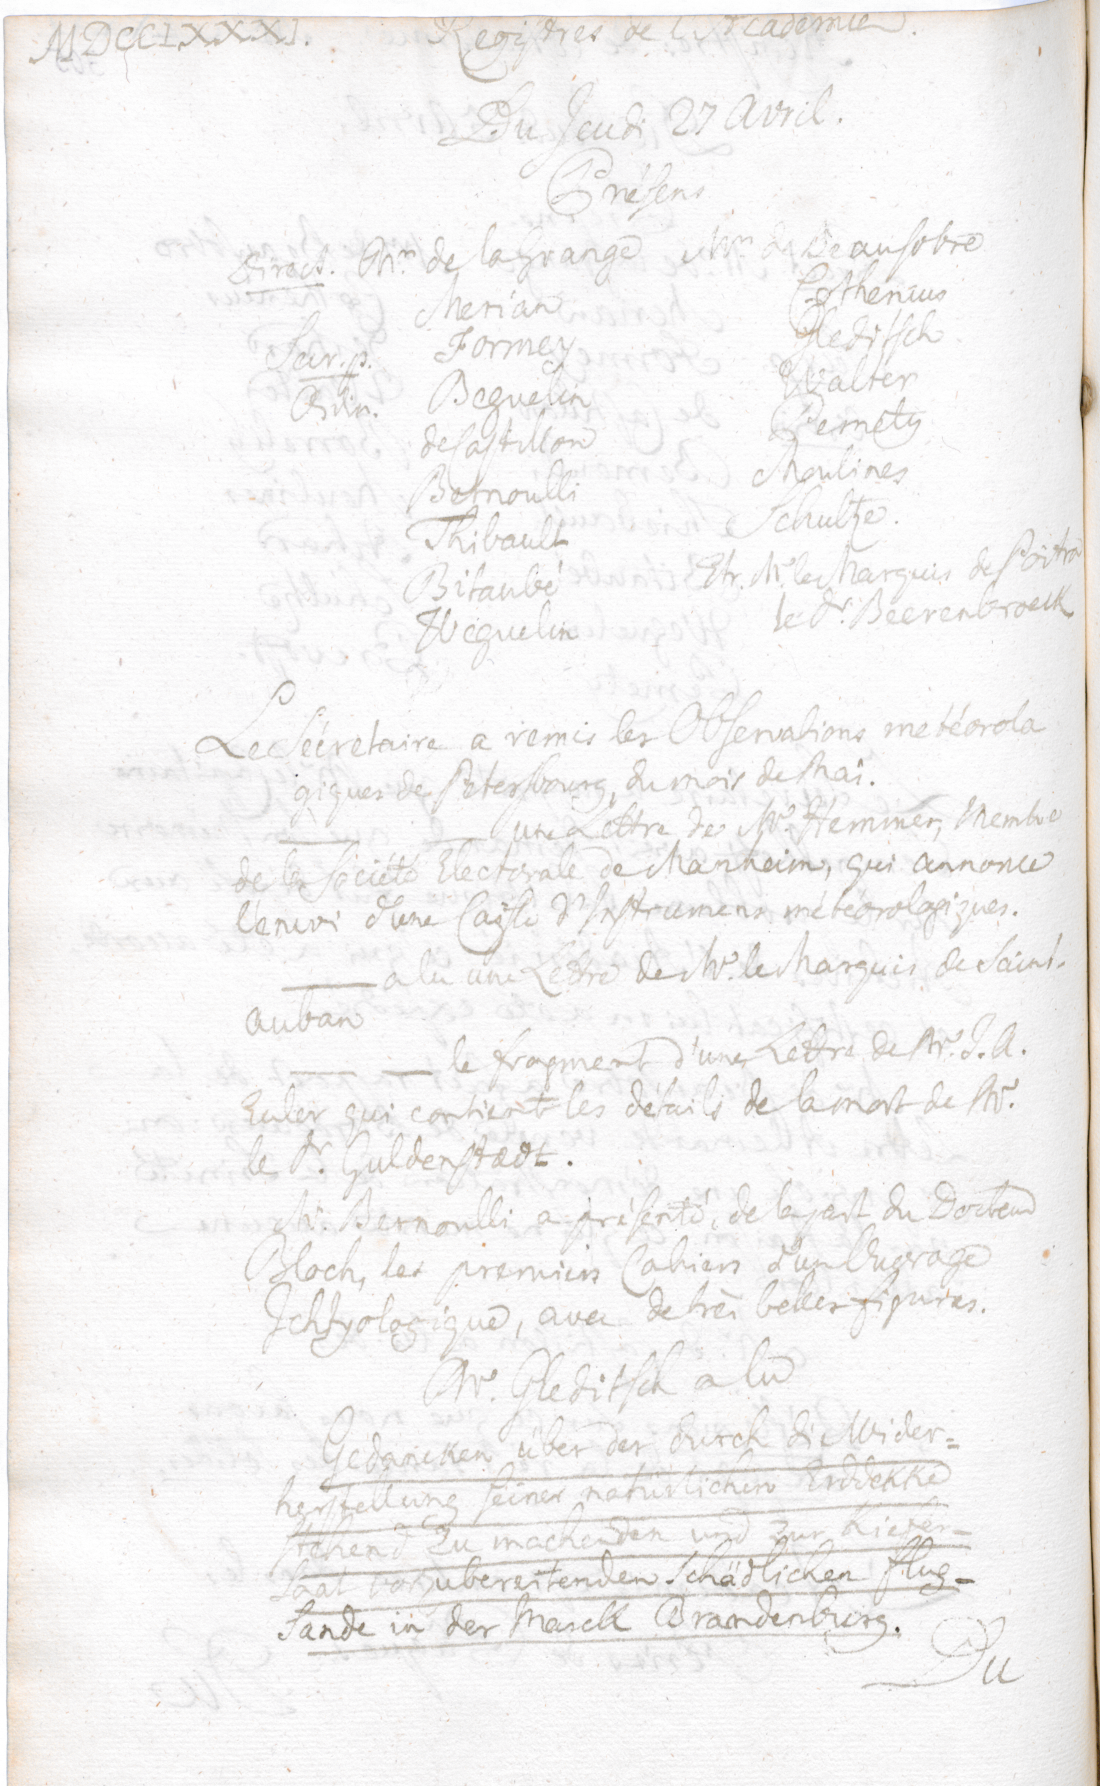 MDCCLXXXI. Registres de l'Academie.
Du Jeudi 27 Avril.
Présens
Direct. Mrs. de la Grange Mrs. de Beausobre
Merian Cothenius
Secr. p. Formey Gleditsch
Beguelin Walter
de Castillon Pernety
Bernoulli Moulines
Thibault Schultze.
Bitaubé Etr. Mr. le Marquis de
Weguelin le Dr. Beerenbroeck
Le Sécretaire a remis les Observations météorolo
giques de Petersbourg, du mois de Mai.
une Lettre de Mr. Hemmer, Membre
de la Société Electorale de Manheim, qui annonce
l'envoi d'une Caisse d'Instrumens météorologiques.
a lu une Lettre de Mr. le Marquis de Saint-
Auban
le fragment d'une Lettre de Mr. J. A.
Euler qui contient les détails de la mort de Mr.
le Dr. Guldenstaedt.
Mr. Bernoulli a présenté, de la part du Docteur
Bloch, les premiers Cahiers d'un Ouvrage
Ichtyologique, avec de très belles figures.
Mr. Gleditsch a lu
Gedancken über der durch die Wider=
herstellung seiner natürlichen Erddekke
stehend zu machenden und zur Kiefer-
saat vorzubereitenden schädlichen flug-
sande in der Marck Brandenburg.
Du